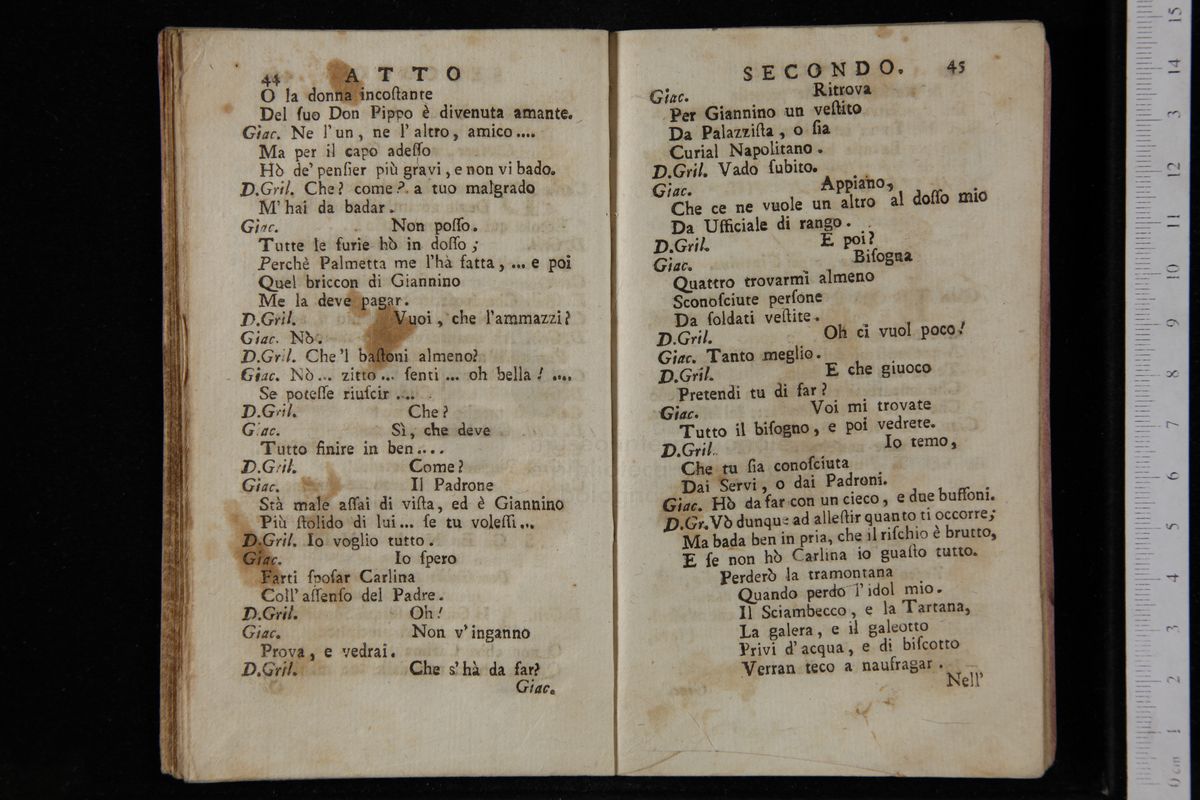 44 ATTO
O la donna incoſtante
Del ſuo Don Pippo è divenuta amante.
Giac. Ne l'un, ne l'altro, amico....
Ma per il capo adeſſo
Hò de' penſier più gravi, e non vi bado.
D.Gril. Che? come? a tuo malgrado
M'hai da badar.
Giac. Non poſſo.
Tutte le furie hò in doſſo;
Perchè Palmetta me l'hà fatta, ... e poi
Quel briccon di Giannino
Me la deve pagar.
D.Gril. Vuoi, che l'ammazzi?
Giac. Nò.
D.Gril. Che'l baſtoni almeno?
Giac. Nò... zitto... ſenti ... oh bella! ....
Se poteſſe riuſcir ....
D.Gril. Che?
Giac. Sì, che deve
Tutto finire in ben....
D.Gril. Come?
Giac. Il Padrone
Stà male aſſai di viſta, ed è Giannino
Più ſtolido di lui... ſe tu voleſſi...
D.Gril. Io voglio tutto.
Giac. Io ſpero
Farti ſpoſar Carlina
Coll'aſſenſo del Padre.
D.Gril. Oh!
Giac. Non v'inganno
Prova, e vedrai.
D.Gril. Che s'hà da far?
Giac.
SECONDO. 45
Giac. Ritrova
Per Giannino un veſtito
Da Palazziſta, o ſia
Curial Napolitano.
D.Gril. Vado ſubito.
Giac. Appiano,
Che ce ne vuole un altro al doſſo mio
Da Ufficiale di rango.
D.Gril. E poi?
Giac. Biſogna
Quattro trovarmi almeno
Sconoſciute perſone
Da ſoldati veſtite.
D.Gril. Oh ci vuol poco!
Giac. Tanto meglio.
D.Gril. E che giuoco
Pretendi tu di far?
Giac. Voi mi trovate
Tutto il biſogno, e poi vedrete.
D.Gril. Io temo,
Che tu ſia conoſciuta
Dai Servi, o dai Padroni.
Giac. Hò da far con un cieco, e due buffoni.
D.Gr. Vò dunque ad alleſtir quanto ti occorre;
Ma bada ben in pria, che il riſchio è brutto,
E ſe non hò Carlina io guaſto tutto.
Perderò la tramontana
Quando perdo l'idol mio.
Il Sciambecco, e la Tartana,
La galera, e il galeotto
Privi d'acqua, e di biſcotto
Verran teco a naufragar.
Nell'
15
14
13
12
11
10
9
8
7
6
5
4
3
2
1
0 cm